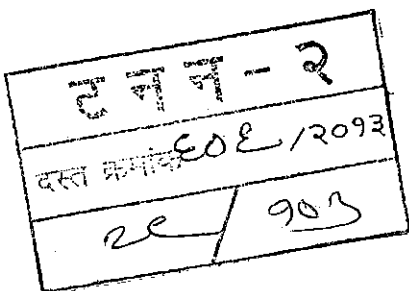 ट न न - २
दस्त क्रमांक ६०६ /२०१३
२८ / १०३